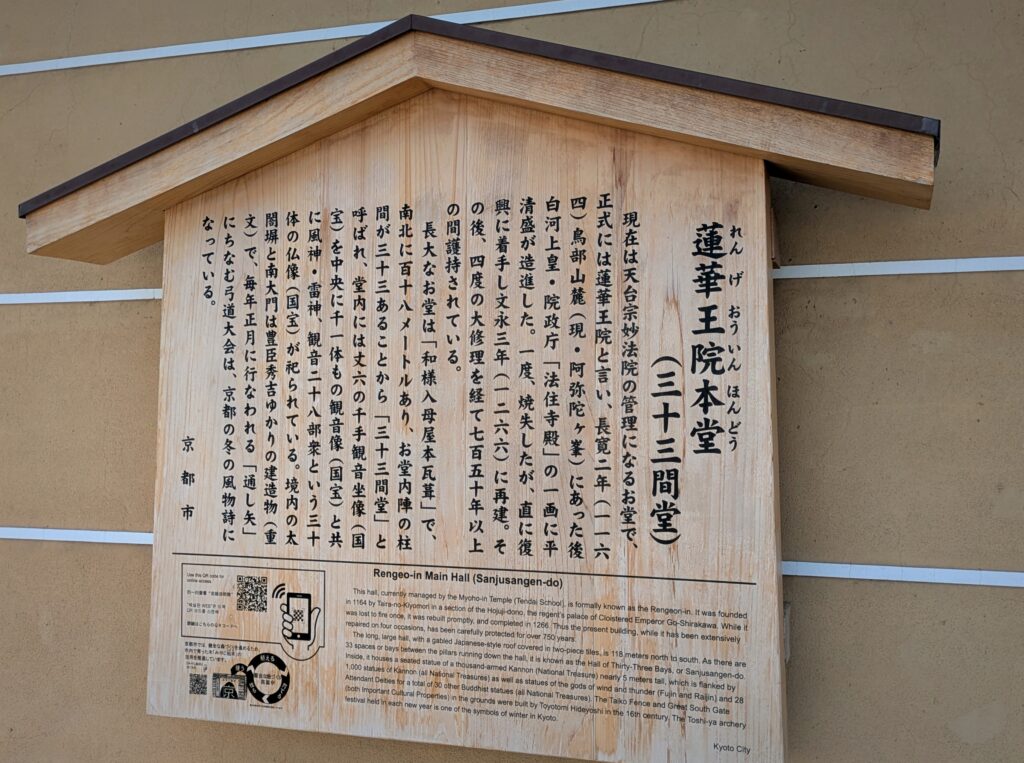 蓮華王院本堂
れんげおういんほんどう
(三十三間堂)
現在は天台宗妙法院の管理になるお堂で、
正式には蓮華王院と言い、長寛二年(一一六
四)鳥部山麓(現・阿弥陀ヶ峯)にあった後
白河上皇・院政庁「法住寺殿」の一画に平
清盛が造進した。一度、焼失したが、直に復
興に着手し文永三年(一二六六)に再建。そ
の後、四度の大修理を経て七百五十年以上
の間護持されている。
長大なお堂は「和様入母屋本瓦葺」で、
南北に百十八メートルあり、お堂内陣の柱
間が三十三あることから「三十三間堂」と
呼ばれ、堂内には丈六の千手観音坐像(国
宝)を中央に千一体もの観音像(国宝)と共
に風神・雷神、観音二十八部衆という三十
体の仏像(国宝)が祀られている。境内の太
閤塀と南大門は豊臣秀吉ゆかりの建造物(重
文)で、毎年正月に行なわれる「通し矢」
にちなむ弓道大会は、京都の冬の風物詩に
なっている。
京都市
Rengeo-in Main Hall (Sanjusangen-do)
This hall, currently managed by the Myoho-in Temple (Tendai School), is formally known as the Rengeon-in. It was founded
in 1164 by Taira-no-Kiyomori in a section of the Hojuji-dono, the regent's palace of Cloistered Emperor Go-Shirakawa. While it
was lost to fire once, it was rebuilt promptly, and completed in 1266. Thus the present building, while it has been extensively
repaired on four occasions, has been carefully protected for over 750 years.
The long, large hall, with a gabled Japanese-style roof covered in two-piece tiles, is 118 meters north to south. As there are
33 spaces or bays between the pillars running down the hall, it is known as the Hall of Thirty-Three Bays, or Sanjusangen-do.
Inside, it houses a seated statue of a thousand-armed Kannon (National Treasure) nearly 5 meters tall, which is flanked by
1,000 statues of Kannon (all National Treasures) as well as statues of the gods of wind and thunder (Fujin and Raijin) and 28
Attendant Deities for a total of 30 other Buddhist statues (all National Treasures). The Taiko Fence and Great South Gate
(both Important Cultural Properties) in the grounds were built by Toyotomi Hideyoshi in the 16th century. The Toshi-ya archery
festival held in each new year is one of the symbols of winter in Kyoto.
Kyoto City
Use this QR code for
online access
詳細はこちらのQRコードへ